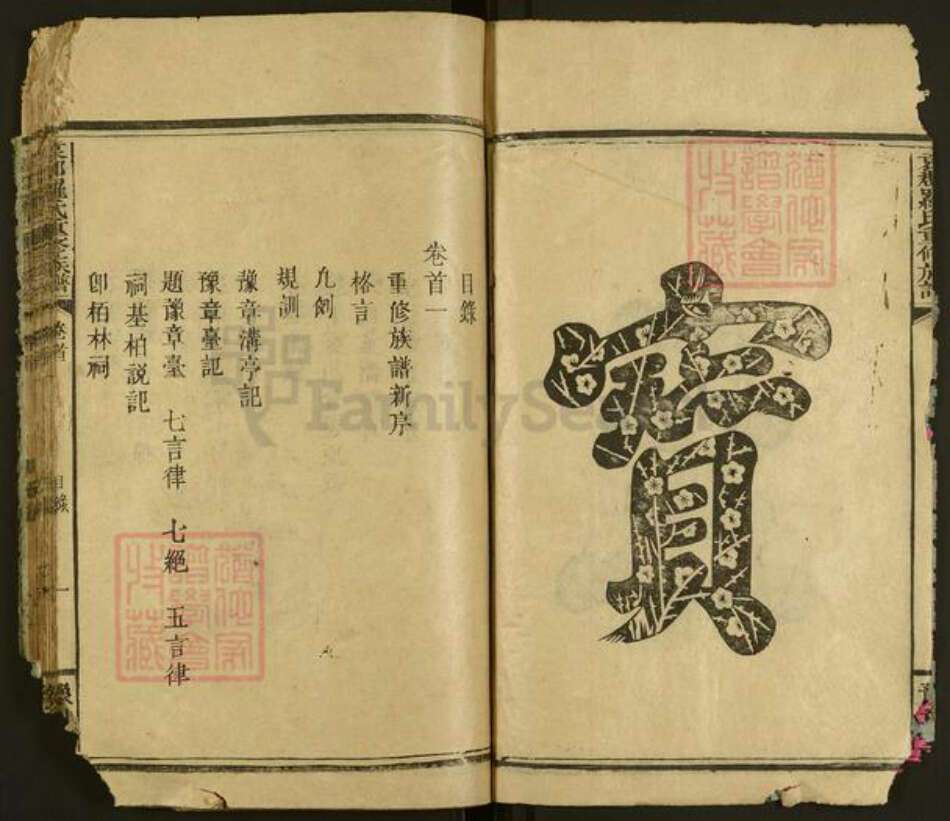 寳
目錄
卷首一
重修族譜新序
格言
凡例
規訓
豫章溝亭記
豫章臺記
題豫章臺 七言律 七絕 五言律
祠基柏説記
卽栢林祠
羅氏重修族譜
卷首
目錄
一
譜學會
收藏
譜學會
收藏
FamilySe